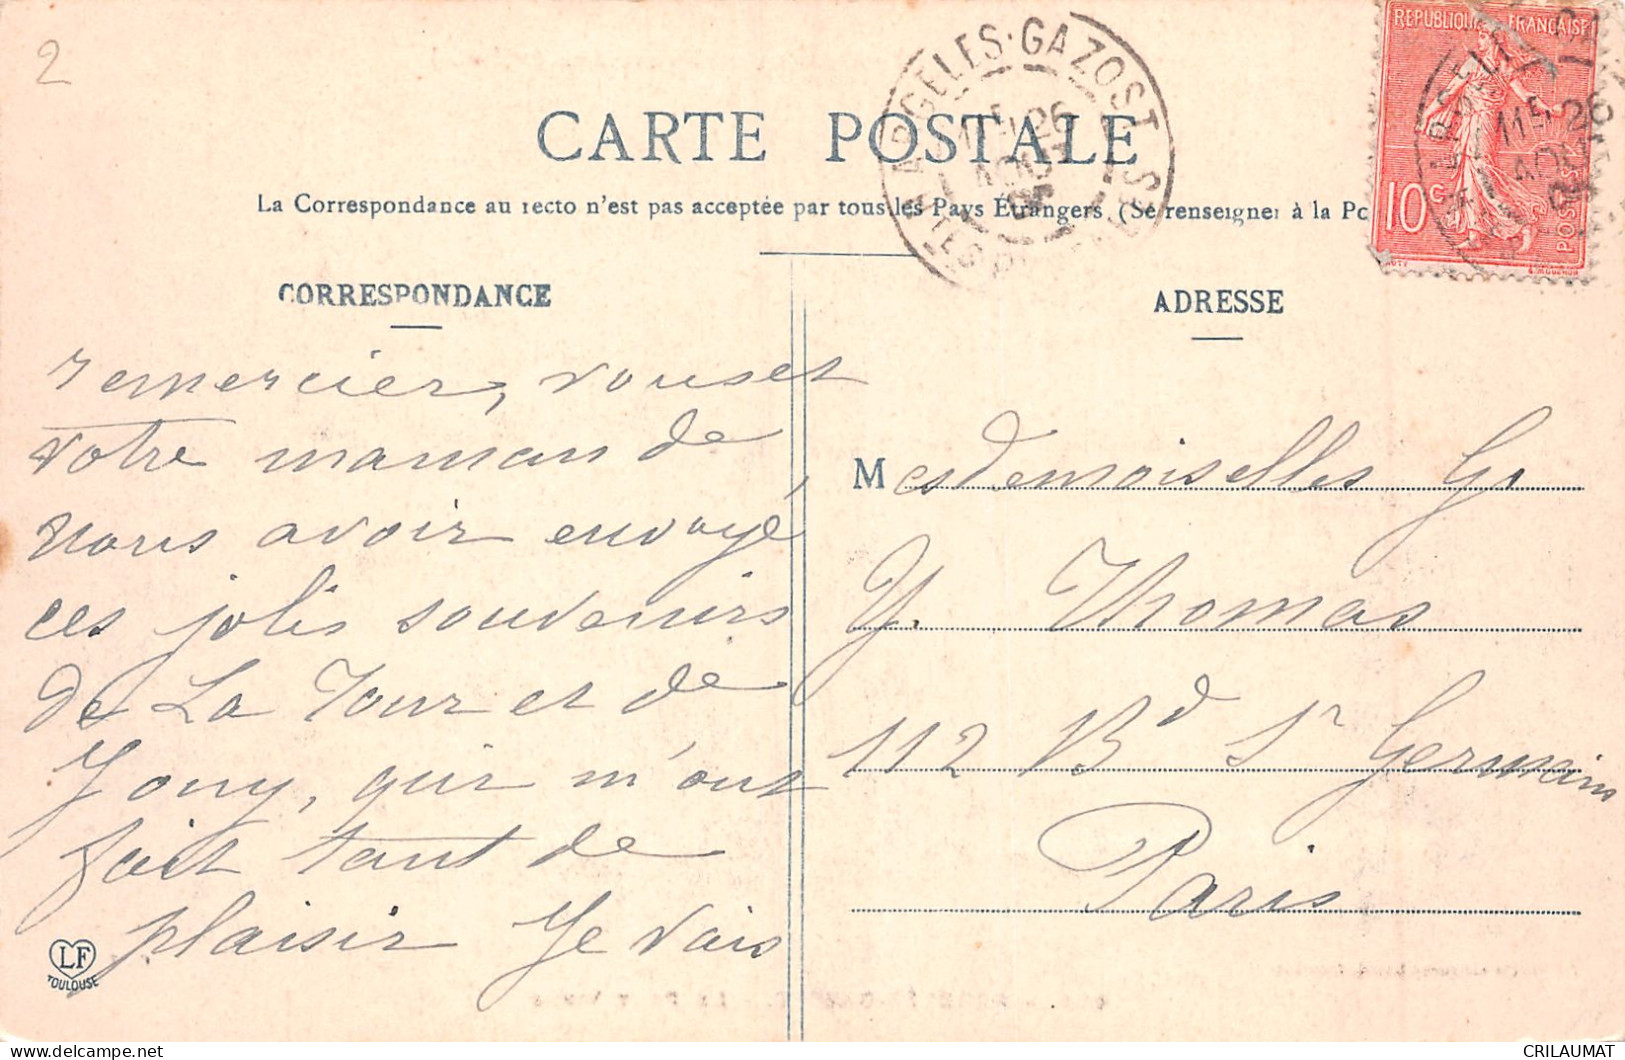 2
CARTE POSTALE
La Correspondance au recto n'est pas acceptée par tous les Pays Étrangers. (Se renseigner à la Po
ARGELÈS-GAZOST
26
AOUT
REPUBLIQUE FRANÇAISE
10c
POSTES
CORRESPONDANCE
remercier, vous et
votre maman de
nous avoir envoyé
ces jolis souvenirs
de La Tour et de
Jouy, qui m'ont
fait tant de
plaisir Je vais
LF
TOULOUSE
ADRESSE
Mesdemoiselles G.
Y. Thomas
112 Bd St Germain
Paris
CRILAUMAT